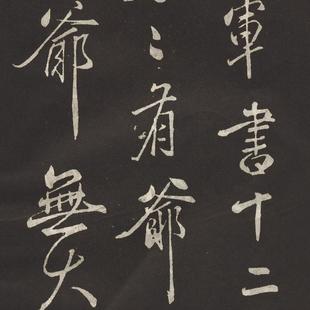 軍書十二
〻〻有爺
爺無大